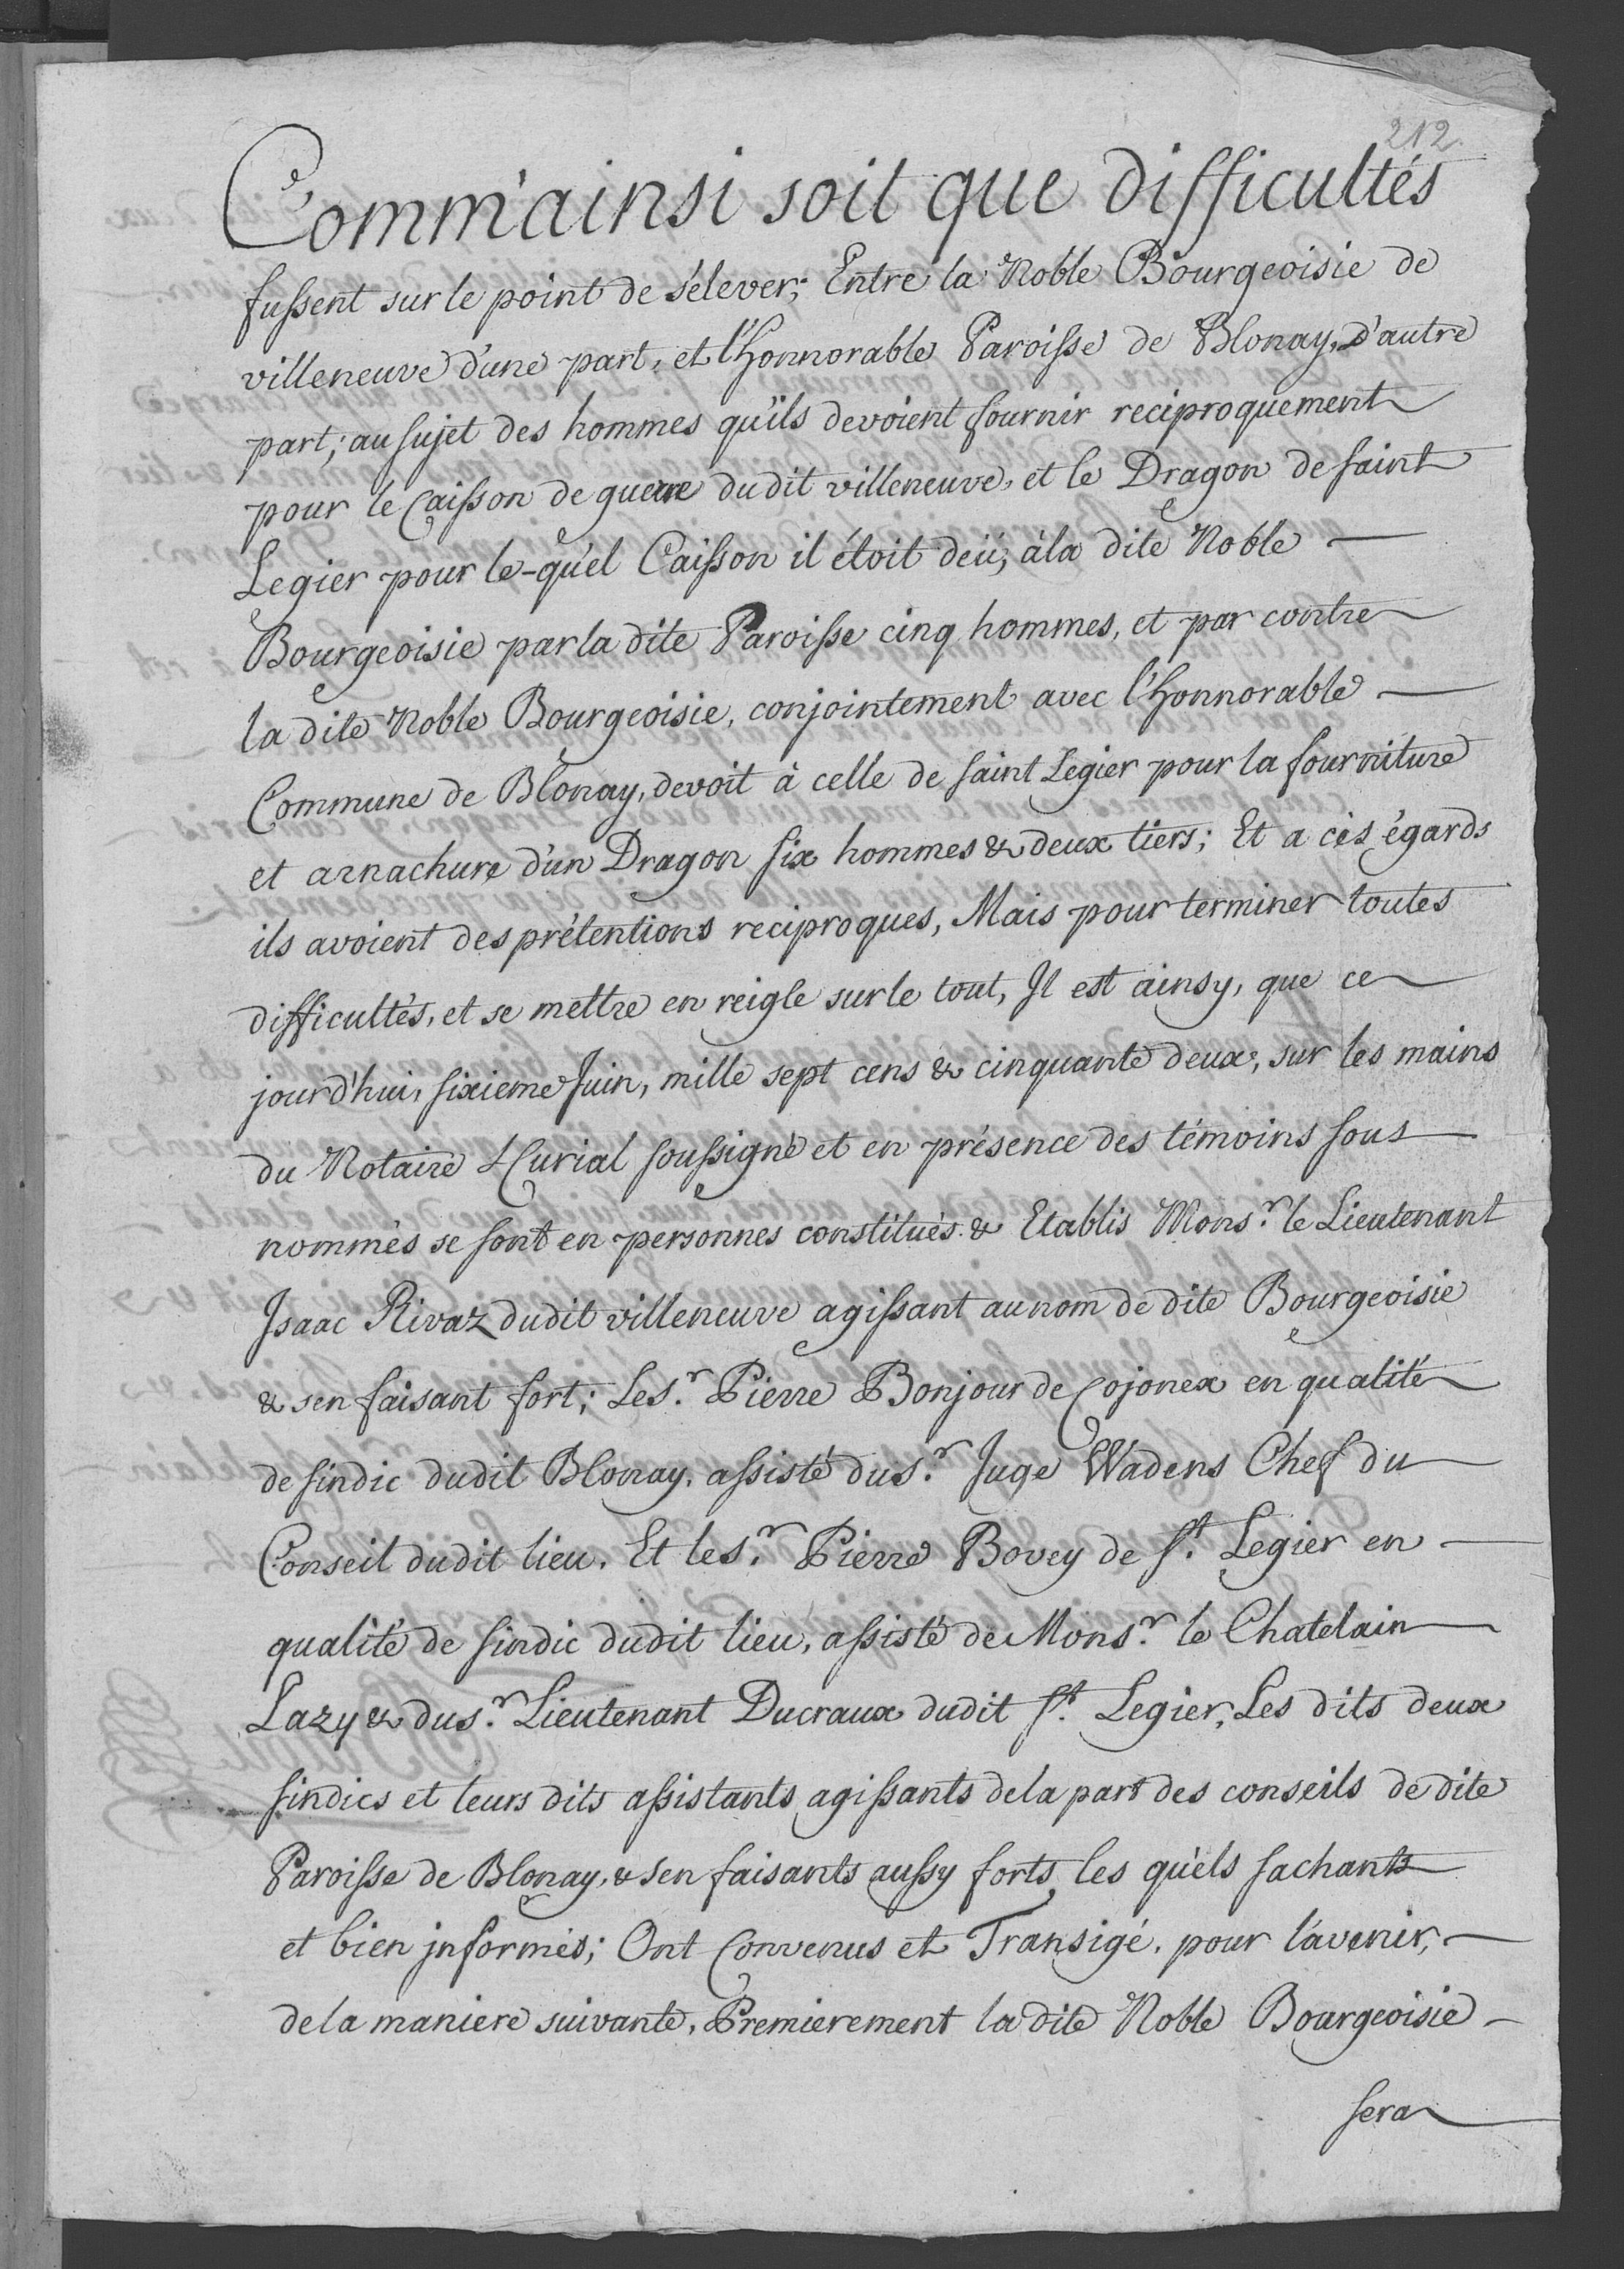 212.
Comm'ainsi soit que difficultés
fussent sur le point de s'élever; Entre la Noble Bourgeoisie de
villeneuve d'une part, et l'Honnorable Paroisse de Blonay, d'autre
part; au sujet des hommes qu'ils devoient fournir reciproquement
pour le Caisson de guerre dudit villeneuve, et le Dragon de saint
Legier pour le-qu'el Caisson il étoit deü, à la dite Noble
Bourgeoisie par la dite Paroisse cinq hommes, et par contre
la dite Noble Bourgeoisie, conjointement avec l'Honnorable
Commune de Blonay, devoit à celle de saint Legier pour la fourniture
et arnachure d'un Dragon six hommes & deux tiers; Et a cès égards
ils avoient des prétentions reciproques, Mais pour terminer toutes
difficultés, et se mettre en reigle sur le tout, Il est ainsy, que ce
jourd'hui, sixieme Juin, mille sept cens & cinquante deux, sur les mains
du Notaire & Curial soussigné et en présence des témoins sous
nommés se sont en personnes constitués & Etablis Mons.r le Lieutenant
Isaac Rivaz dudit villeneuve agissant au nom de dite Bourgeoisie
& sen faisant fort; Le S.r Pierre Bonjour de Cojonex en qualité
de sindic dudit Blonay, assisté du S.r Juge Wadens Chef du
Conseil dudit lieu. Et le S.r Pierre Bovey de S.t Legier en
qualité de sindic dudit lieu, assisté de Mons.r le Chatelain
Lazy & du S.r Lieutenant Ducraux dudit S.t Legier, Les dits deux
sindics et leurs dits assistants agissants de la part des conseils de dite
Paroisse de Blonay, & sen faisants aussy forts, les qu'els sachants
et bien jnformés; Ont Convenus et Transigé. pour l'avenir,
de la maniere suivante, Premierement la dite Noble Bourgeoisie
sera